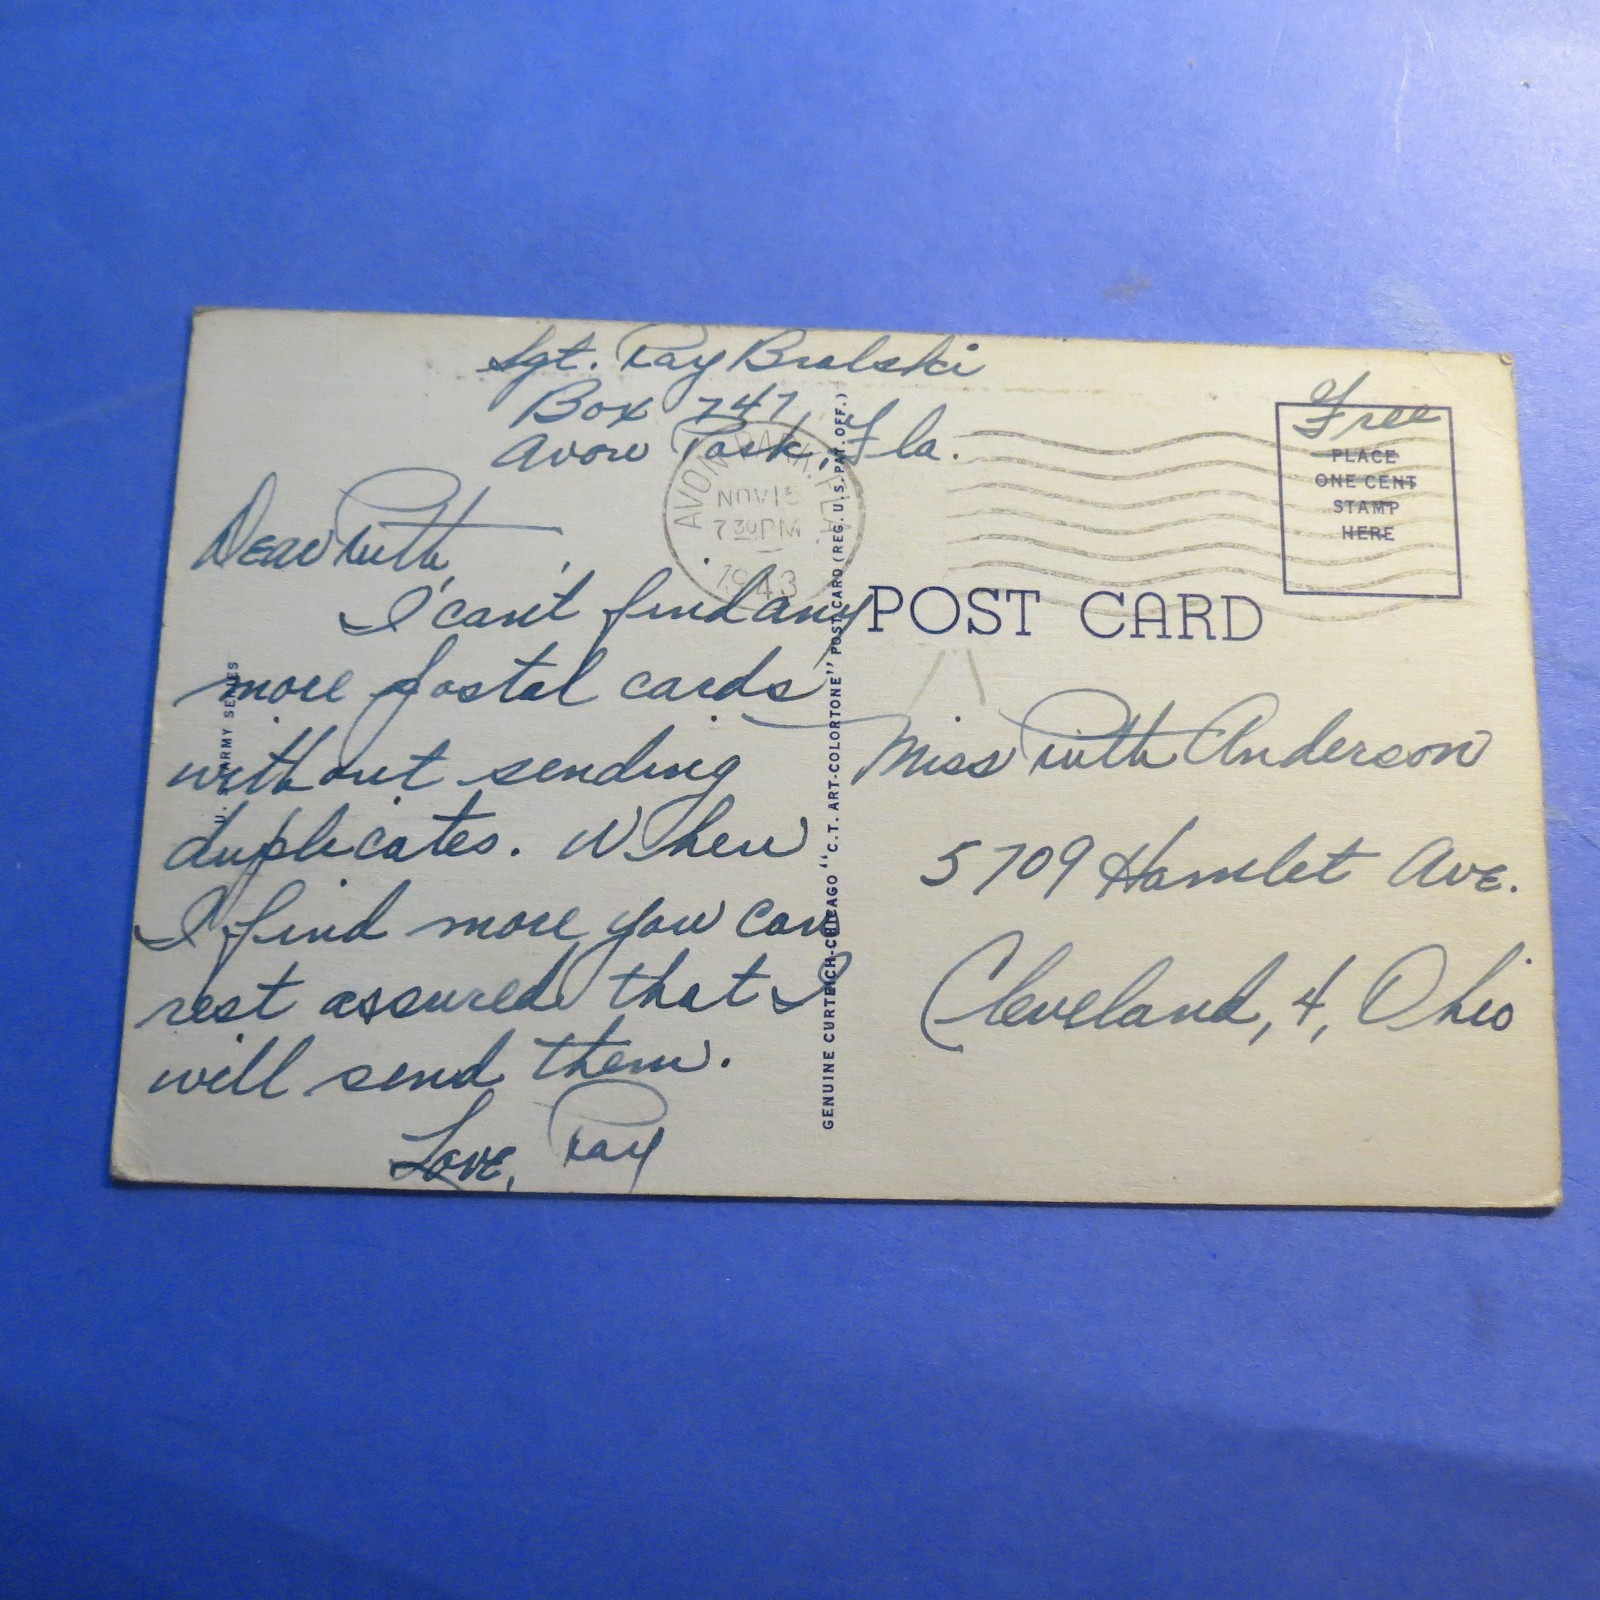 Sgt. Ray Bralski
Box 747
Avon Park, Fla.
AVON PARK, FLA.
NOV 15
7 30 PM
1943
Free
PLACE
ONE CENT
STAMP
HERE
Dear Ruth,
I can't find any
more postal cards
without sending
duplicates. When
I find more you can
rest assured that I
will send them.
Love, Ray
U. S. ARMY SERIES
GENUINE CURTEICH-CHICAGO "C.T. ART-COLORTONE" POST CARD (REG. U.S. PAT. OFF.)
POST CARD
Miss Ruth Anderson
5709 Hamlet Ave.
Cleveland, 4, Ohio